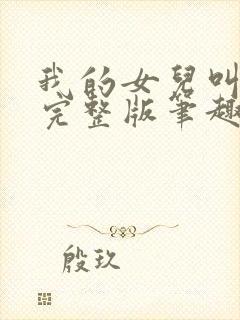 我的女兒叫
完整版筆趣
殷玖